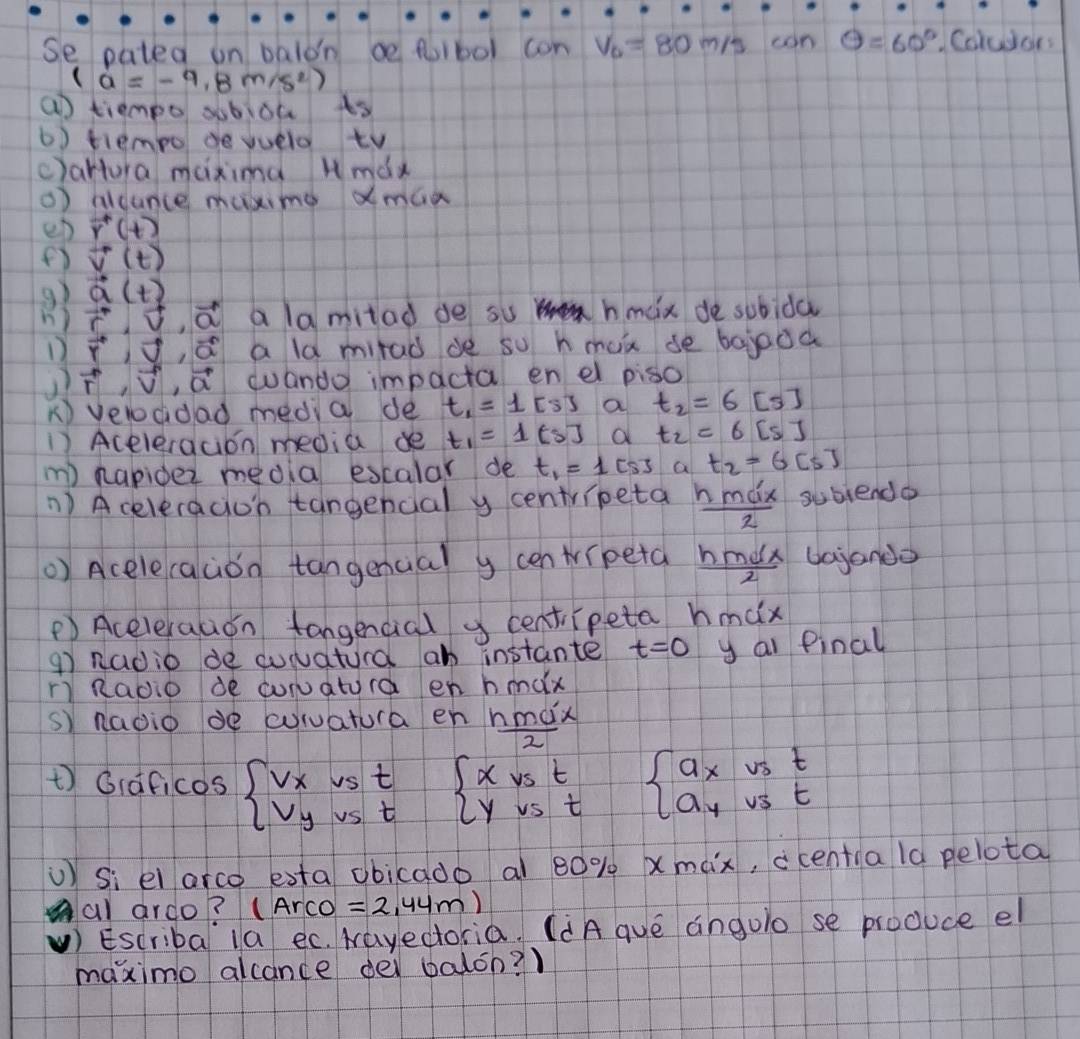 Se patea un balón de fútbol con V₀ = 80 m/s con θ = 60°. Calcular:
(a = -9,8 m/s²)
a) tiempo subida ts
b) tiempo de vuelo tv
c) artura máxima Hmáx
d) alcance máximo xmáx
e) r⃗ (t)
f) v⃗ (t)
g) a⃗ (t)
h) r⃗, v⃗, a⃗ a la mitad de su hmáx de subida
i) r⃗, v⃗, a⃗ a la mitad de su hmáx de bajada
j) r⃗, v⃗, a⃗ cuando impacta en el piso
k) velocidad media de t₁ = 1 [s] a t₂ = 6 [s]
l) Aceleración media de t₁ = 1 [s] a t₂ = 6 [s]
m) Rapidez media escalar de t₁ = 1 [s] a t₂ = 6 [s]
n) Aceleración tangencial y centrípeta hmáx/2 subiendo
o) Aceleración tangencial y centrípeta hmáx/2 bajando
p) Aceleración tangencial y centrípeta hmáx
q) Radio de curvatura an instante t=0 y al final
r) Radio de curvatura en hmáx
s) Radio de curvatura en hmáx/2
t) Gráficos { Vx vs t { x vs t { ax vs t
Vy vs t y vs t ay vs t
u) Si el arco esta ubicado al 80% xmáx, ¿centra la pelota
al arco? (Arco = 2,44m)
v) Escriba la ec. trayectoria. (¿A qué ángulo se produce el
máximo alcance del balón?)